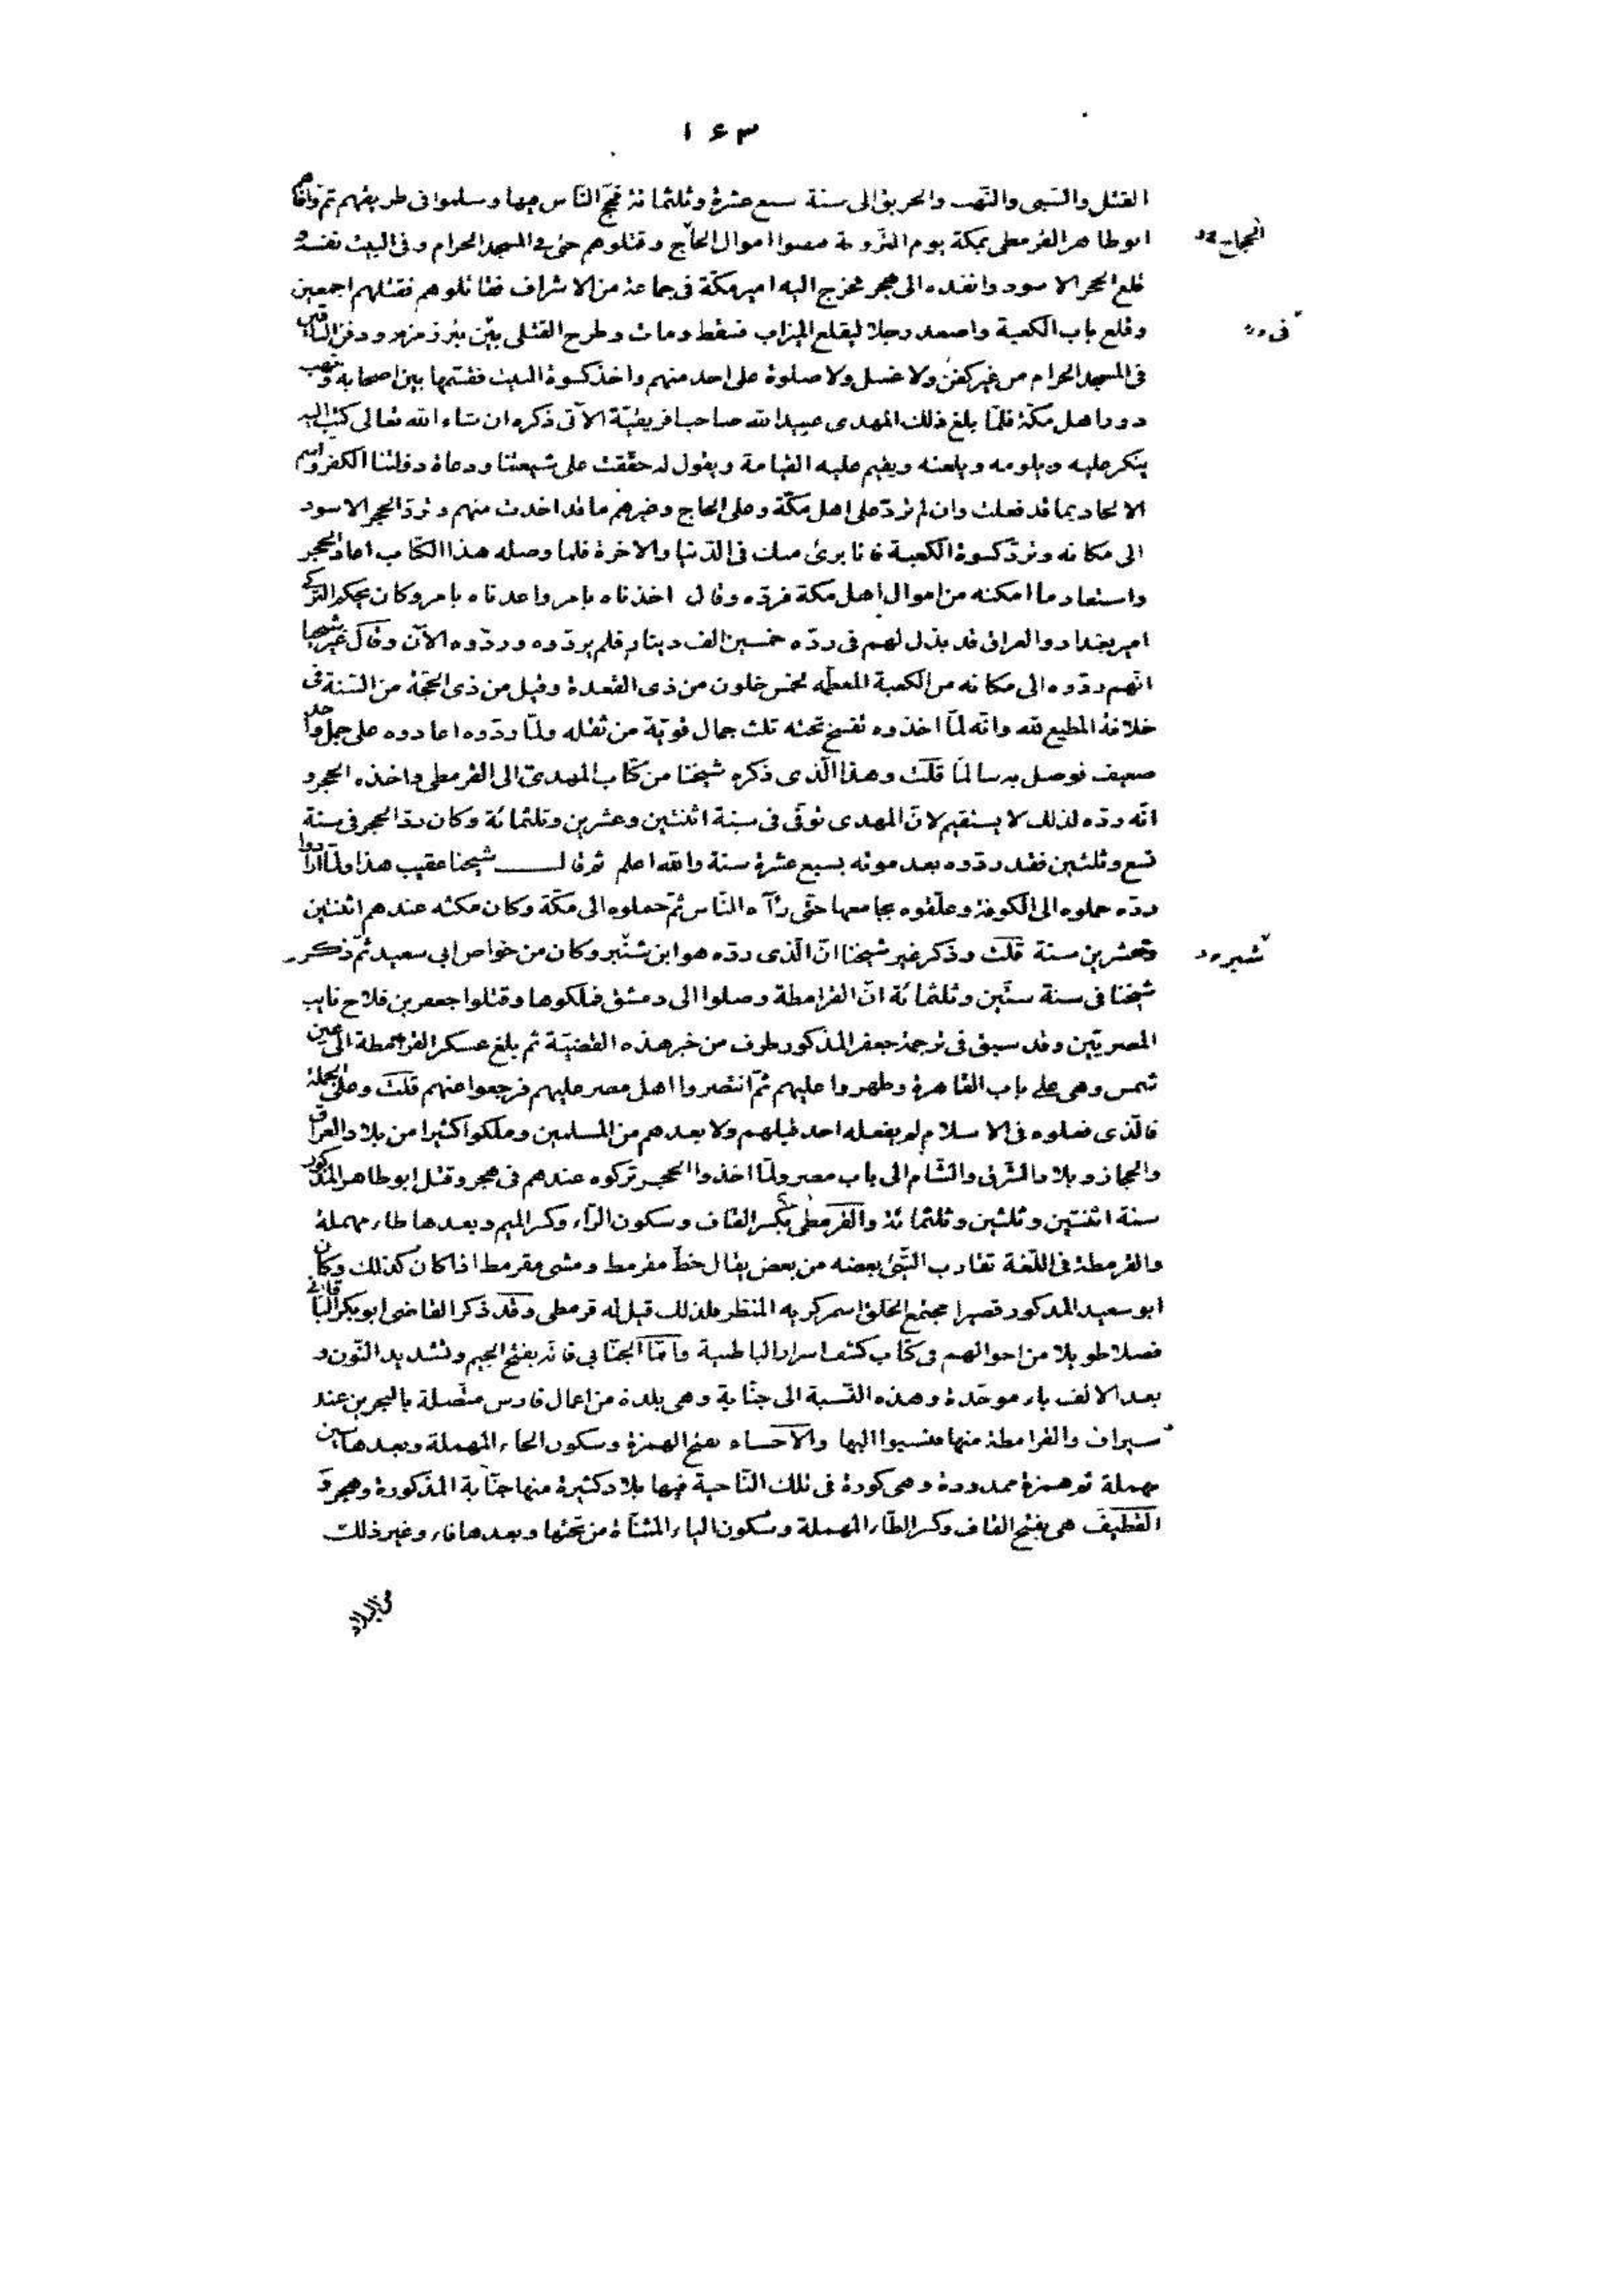 ١٤٣
القتل والسّبى والنّهب والحريق الى سنة سبع عشرة وثلثمائة فحجّ النّاس فيها وسلموا فى طريقهم ثمّ وافاهم
ابو طاهر القرمطى بمكة يوم التّروية فنهبوا اموال الحاّج وقتلوهم حتى فى المسجد الحرام وفى البيت نفسه
الحجاج
قلع الحجر الاسود وانفذه الى هجر فخرج اليه امير مكّة فى جماعة من الاشراف فقاتلوهم فقتلهم اجمعين
وقلع باب الكعبة واصعد رجلا ليقلع الميزاب فسقط ومات وطرح القتلى بيّن بئر زمزم ودفن الباقين
فى
فى المسجد الحرام من غير كفن ولا غسل ولا صلوة على احد منهم واخذ كسوة البيت فقسّمها بين اصحابه ونهب
دور اهل مكّة فلمّا بلغ ذلك المهدى عبيد الله صاحب افريقيّة الآتى ذكره ان شاء الله تعالى كتب اليه
ينكر عليه ويلومه ويلعنه ويقيم عليه القيامة ويقول له حقّقت على شيعتنا ودعاة دولتنا الكفر واسم
الالحاد بما قد فعلت وان لم تردّ على اهل مكّة وعلى الحاج وغيرهم ما قد اخذت منهم وتردّ الحجر الاسود
الى مكانه وتردّ كسوة الكعبة فانا برئ منك فى الدّنيا والاخرة فلما وصله هذا الكتاب اعاد الحجر
واستعاد ما امكنه من اموال اهل مكة فردّه وقال اخذناه بامر واعدناه بامر وكان بجكم التركى
امير بغداد والعراق قد بذل لهم فى ردّه خمسين الف دينار فلم يردّوه وردّوه الآن وقال غير شيخنا
انّهم ردّوه الى مكانه من الكعبة المعظّمه لخمس خلون من ذى القعدة وقيل من ذى الحجّة من السّنة فى
خلافة المطيع لله وانّه لمّا اخذوه تفسّخ تحته ثلث جمال قويّة من ثقله ولمّا ردّوه اعادوه على جمل واحد
ضعيف فوصل به سالمًا قلت وهذا الّذى ذكره شيخنا من كتاب المهدىّ الى القرمطى واخذه الحجر و
انّه ردّه لذلك لا يستقيم لانّ المهدى توفّى فى سنة اثنتين وعشرين وثلثمائة وكان ردّ الحجر فى سنة
تسع وثلثين فقد ردّوه بعد موته بسبع عشرة سنة والله اعلم ثم قال شيخنا عقيب هذا ولمّا ارادوا
ردّه حملوه الى الكوفة وعلّقوه بجامعها حتّى رآه النّاس ثمّ حملوه الى مكّة وكان مكثه عندهم اثنتين
وعشرين سنة قلت وذكر غير شيخنا انّ الّذى ردّه هو ابن شنبر وكان من خواص ابى سعيد ثمّ ذكر
شيخنا فى سنة ستّين وثلثمائة انّ القرامطة وصلوا الى دمشق فملكوها وقتلوا جعفر بن فلاح نايب
المصريّين وقد سبق فى ترجمة جعفر المذكور طرف من خبر هذه القضيّة ثم بلغ عسكر القرامطة الى عين
شمس وهى على باب القاهرة وظهروا عليهم ثمّ انتصروا اهل مصر عليهم فرجعوا عنهم قلت وعلى الجملة
فالّذى فعلوه فى الاسلام لم يفعله احد قبلهم ولا بعدهم من المسلمين وملكوا كثيرا من بلاد العراق
والحجاز وبلاد الشّرق والشّام الى باب مصر ولمّا اخذوا الحجر تركوه عندهم فى هجر وقتل ابو طاهر المذكور
سنة اثنتين وثلثين وثلثمائة والقرمطى بكسر القاف وسكون الرّاء وكسر الميم وبعدها طاء مهملة
والقرمطة فى اللّغة تقارب الشّئ بعضه من بعض يقال خطّ مقرمط ومشى مقرمط اذا كان كذلك وكان
ابو سعيد المذكور قصيرا مجتمع الخلق اسمر كريه المنظر فلذلك قيل له قرمطى وقد ذكر القاضى ابو بكر الباقلانى
فصلا طويلا من احوالهم فى كتاب كشف اسرار الباطنية وامّا الجنّابى فانّه بفتح الجيم وتشديد النّون و
بعد الالف باء موحّدة وهذه النّسبة الى جنّابة وهى بلدة من اعمال فارس متّصلة بالبحرين عند
سيراف والقرامطة منها فنسبوا اليها والاحساء بفتح الهمزة وسكون الحاء المهملة وبعدها سين
مهملة ثم همزة ممدودة وهى كورة فى تلك النّاحية فيها بلاد كثيرة منها جنّابة المذكورة وهجر و
القطيف هى بفتح القاف وكسر الطّاء المهملة وسكون الياء المثنّاة من تحتها وبعدها فاء وغير ذلك
من البلاد